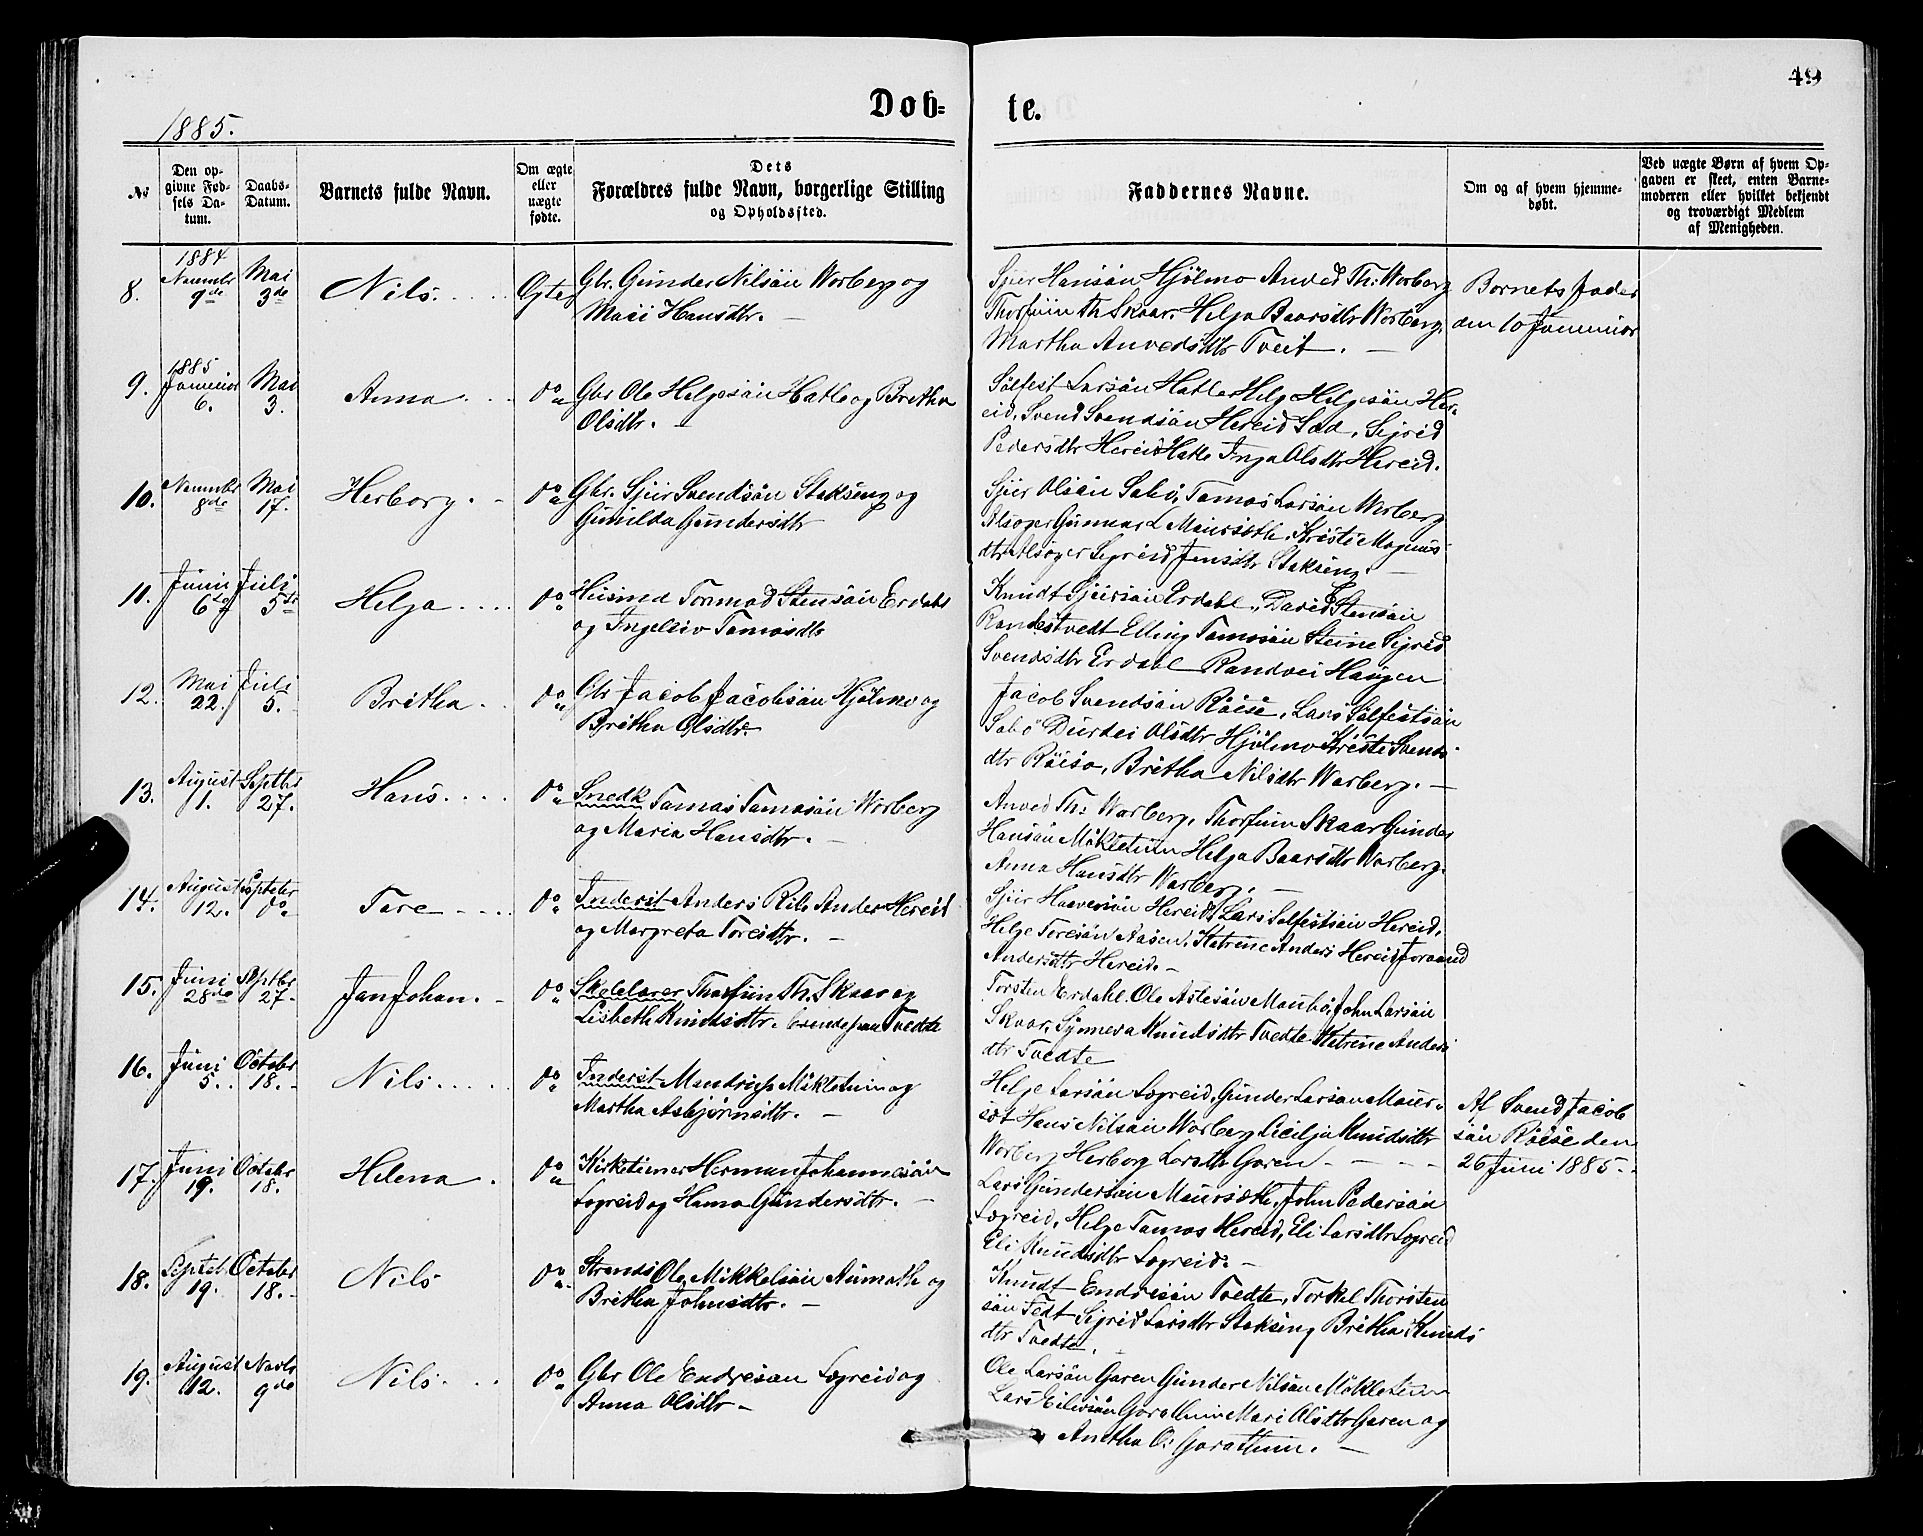 49
Døb=
te.
1885.
№
Den op-
givne Fød-
sels Da-
tum.
Daabs-
Datum.
Barnets fulde Navn.
Om ægte
eller
uægte
fødte.
Dets
Forældres fulde Navn, borgerlige Stilling
og Opholdssted.
Faddernes Navne.
Om og af hvem hjemme-
døbt.
Ved uægte Børn af hvem Op-
gaven er skeet, enten Barne-
moderen eller hvilket bekjendt
og troværdigt Medlem
af Menigheden.
8. 1884 Novmbr 9de Mai 3de Nils. Ogte Gbr. Gunder Nilsän Worberg og
Mari Hansdtr.
Sjur Hansän Hjølmo Anved Th: Worberg
Thorfuin Th Skaar. Helga Baarsdtr Worberg.
Martha Anvedsdtr Tveit.
Bornets Fader
den 10 Januuar
9. 1885 Januar 6. Mai 3. Anna do Gbr Ole Helgesän Hatle og Britha
Olsdtr.
Sølfest Larsän Hatle Helg Helgesän Her-
eid. Svend Svendsän Hereid Sæd, Sigrid
Pedersdtr Hereid Hatle Inga Olsdtr Hereid.
10. Novmbr 8de Mai 17. Herborg. do Gbr. Sjur Svendsän Stakseng og
Gunilda Gundersdtr
Sjur Olsän Sabø, Tamas Larsän Worberg
Alsager Gunnar L Maursæth, Kristi Magnus
dtr Alsager Sigrid Jensdtr Stakseng.
11. Juni 6te Juli 5te Helga do Husmd Tormod Stensän Erdahl
og Ingeleiv Tamasdtr
Knudt Sjursän Erdahl, David Stensän
Randestvedt Elling Tamasän Steine Sigrid
Svendsdtr Erdahl Randvei Haugen
12. Mai 22. Juli 5. Britha do Gbr Jacob Jacobsän Hjølmo og
Britha Olsdtr.
Jacob Svendsän Røise, Lars Sølfestsän
Sabø Durdei Olsdtr Hjølmo Kristi Svends
dtr Røise, Britha Nilsdtr Warberg.
13. August 1. Septbr 27. Hans do Snedk Tamas Tamasän Worberg
og Maria Hansdtr.
Anved Th: Warberg, Thorfuin Skaar Gunder
Hansän Møkletuin Helga Baarsdtr Warberg.
Anna Hansdtr Warberg.
14. August 12. Septebr do Tore do Inderst Anders Rib Anders Hereid
og Margreta Toresdtr.
Sjur Haaversän Hereid Lars Sølfestsän Hereid,
Helge Toresän Aasen, Katrine Anders Hereid Joraand
Andersdtr Hereid.
15. Juni 28de Septbr 27. Jan Johan. do Skolelærer Thorfuin Th. Skaar og
Lisbeth Knudsdtr. boende paa Tvedte
Torsten Erdahl. Ole Aslesän Maubø, John Larsän
Skaar, Synneva Knudsdtr Tvedte Katrine Anders
dtr Tvedte
16. Juni 5. Octobr 18. Nils do Inderst Mandrup Møkletuin og
Martha Asbjørnsdtr.
Helge Larsän Legreid, Gunder Larsän Maur-
sæt Hans Nilsän Warberg Cecilja Knudsdtr
Worberg Herborg Larsth Garen
Af Svend Jacob
sän Røise den
26 Juni 1885.
17. Juni 19. Octobr 18. Helena do Kirketjener Herman Johannesän
Legreid og Hanna Gundersdtr.
Lars Gundersän Maursæth, John Pedersän
Legreid, Helge Tamas Hereid, Eli Larsdtr Legreid
Eli Knudsdtr Legreid.
18. Septeb. 19. October 18. Nils do Strands Ole Mikkelsän Aamoth og
Britha Johnsdtr.
Knudt Endresän Tvedte, Torkel Thorsten
sän Tedt Sigrid Larsdtr Stakseng Britha Knuds
dtr Tvedte.
19. August 12. Novbr 9de Nils do Gbr Ole Endresän Legreid og
Anna Olsdtr
Ole Larsän Garen Gunder Nilsän Møkletuin
Lars Eilivsän Garathuin Mari Olsdtr Garen og
Anetha O. Garathuin.